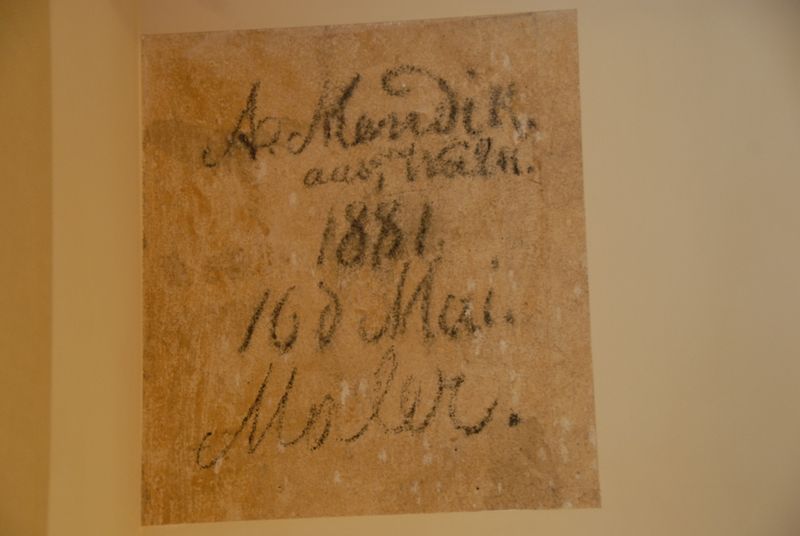 A. Mendik.
aus, Wäln.
1881.
16 d Mai.
Maler.